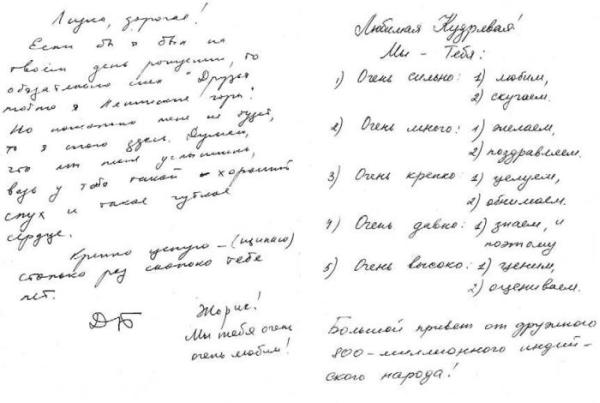 дорогая!
Если бы я был на
твоём дне рождении, то
обязательно спел "Друзья
люблю я Ленинские горы".
Но поскольку меня не будет,
то я спою здесь. Думаю,
что ты меня услышишь,
ведь у тебя такой хороший
слух и такое чуткое
сердце.
Крепко целую - (щипаю)
столько раз сколько тебе
лет.
ДБ
Жорик!
Мы тебя очень
очень любим!
Любимая Кудрявая!
Мы - Тебя:
1) Очень сильно: 1) любим,
2) скучаем.
2) Очень много: 1) желаем,
2) поздравляем.
3) Очень крепко: 1) целуем,
2) обнимаем.
4) Очень давно: 1) знаем, и
поэтому
5) Очень высоко: 1) ценим,
2) оцениваем.
Большой привет от дружного
800-миллионного индий-
ского народа!